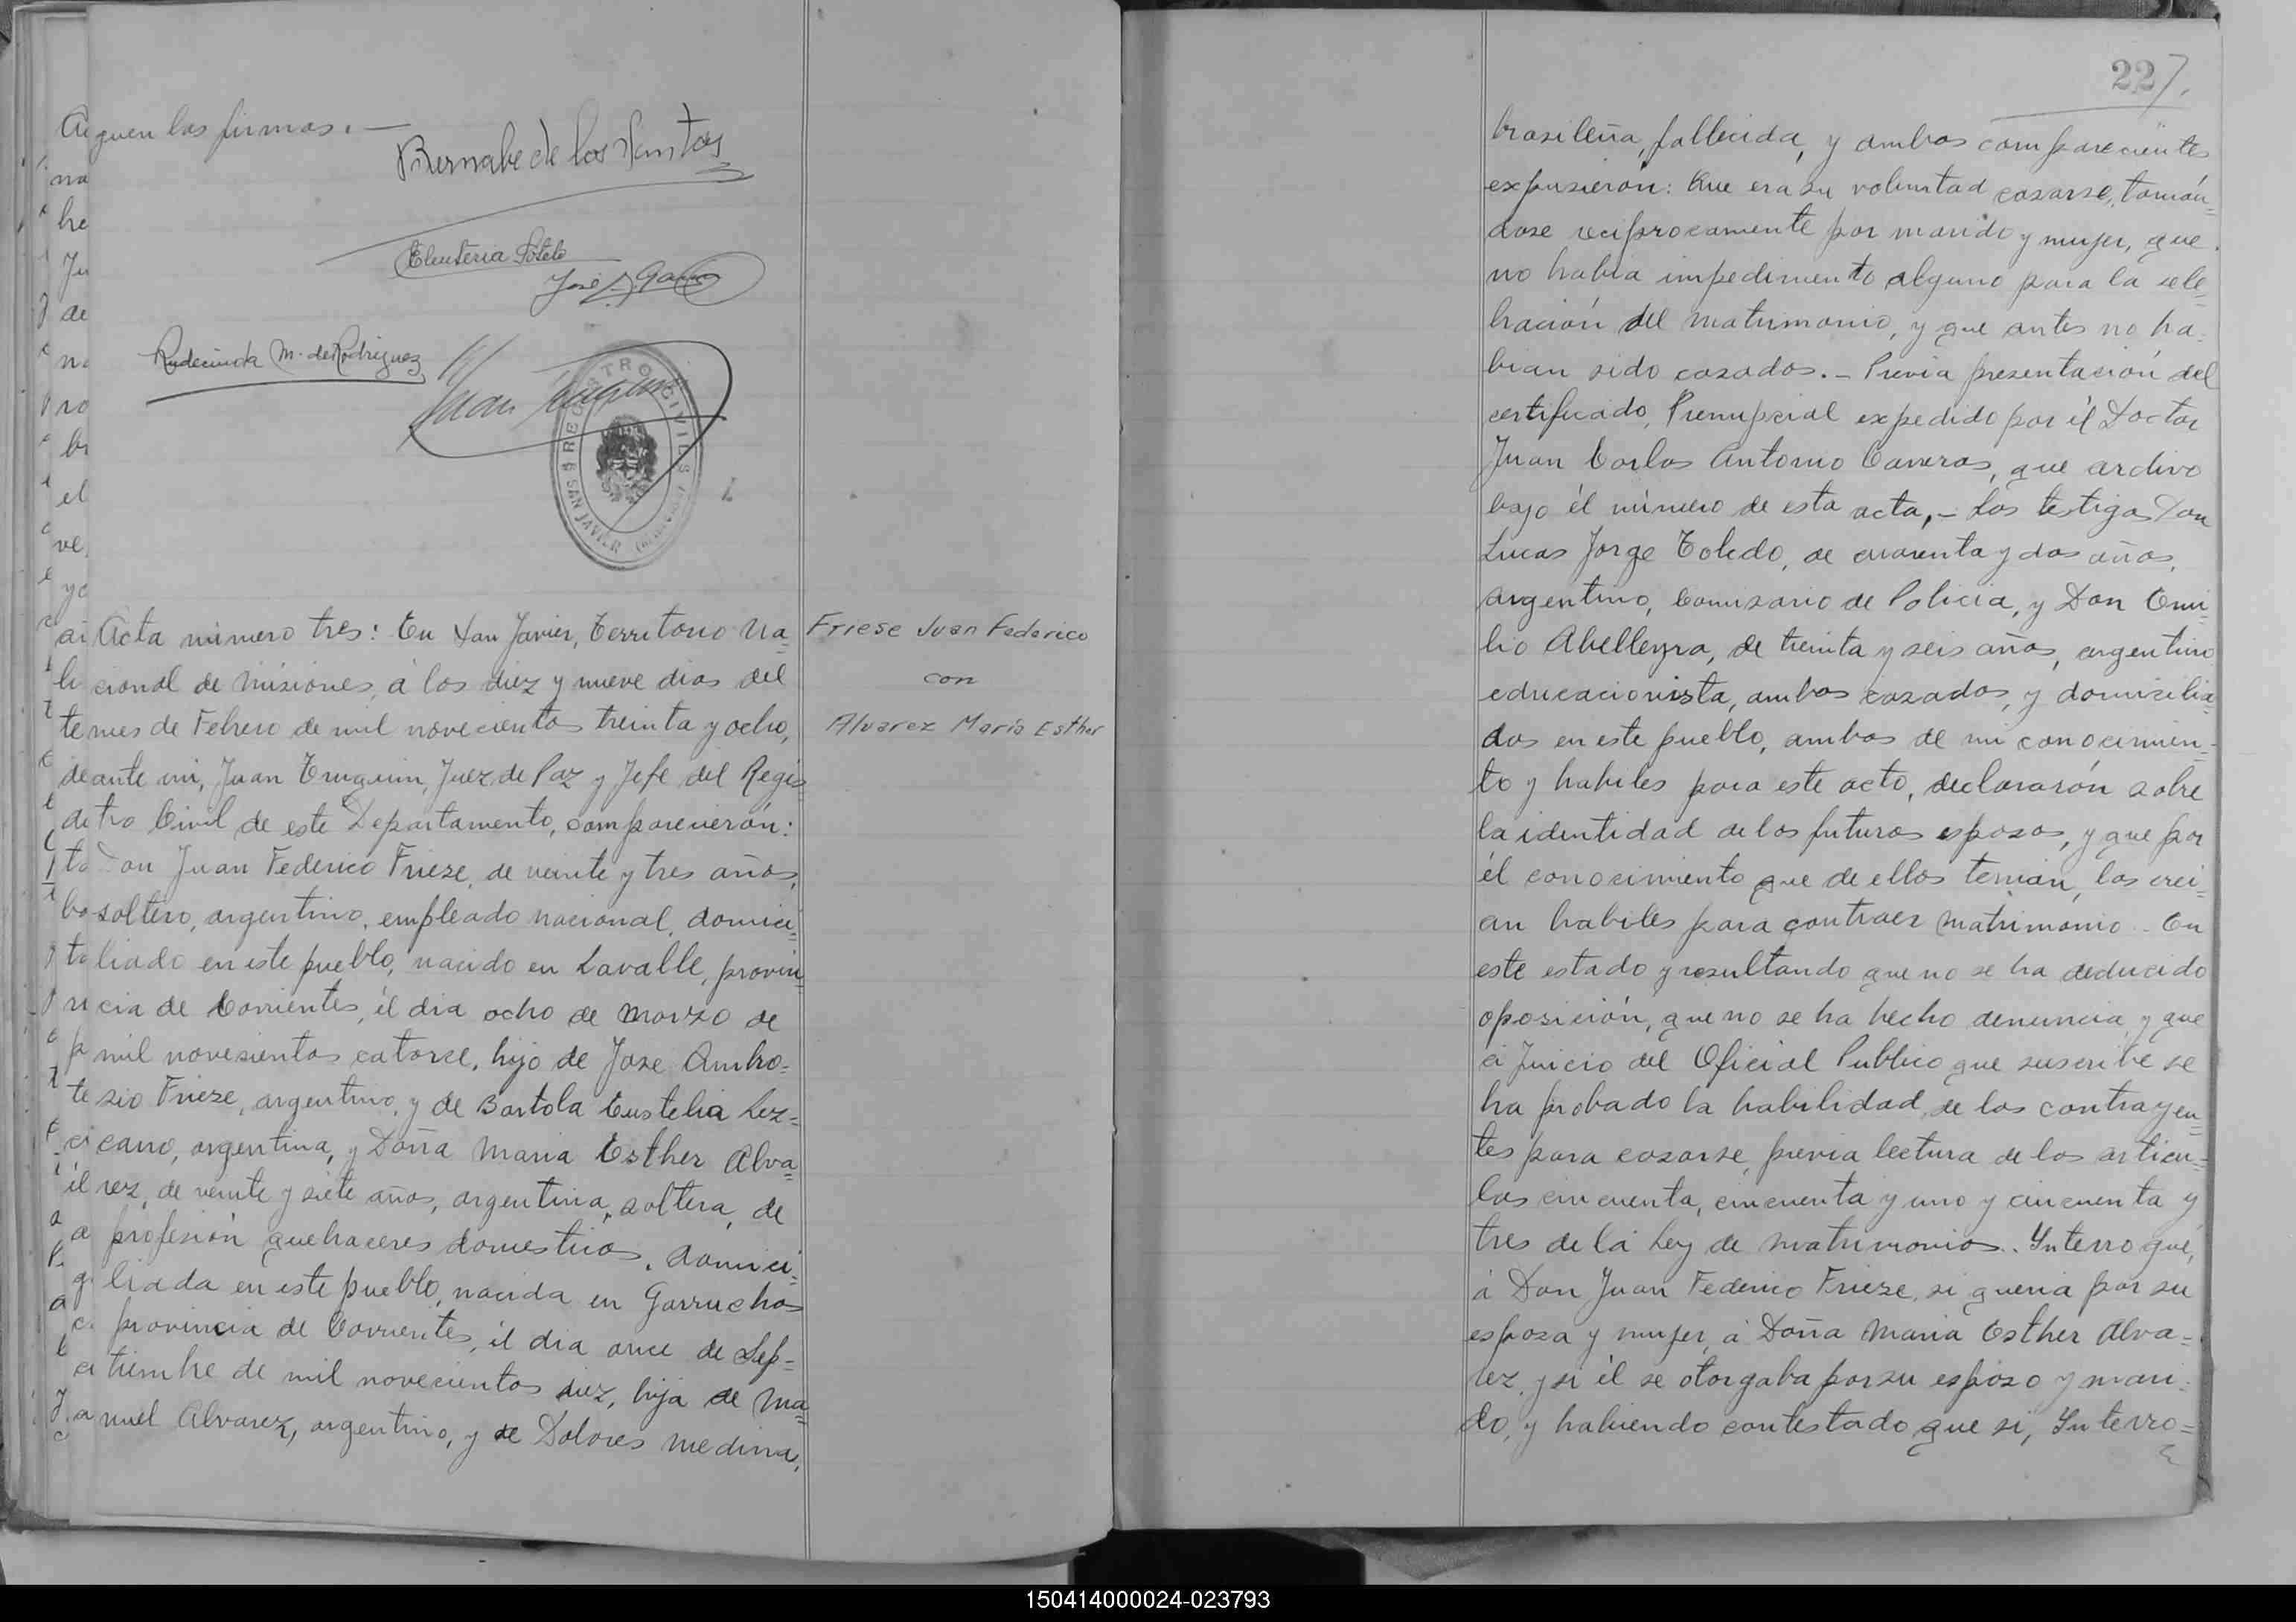 siguen las firmas.—
Bernabe de los Santos
Eleuteria Sotelo
José
Rudecinda M. de Rodriguez
Juan
REGISTRO CIVIL
SAN JAVIER
Acta número tres: En San Javier, Territorio Na=
cional de Misiones, á los diez y nueve dias del
mes de Febrero de mil novecientos treinta y ocho,
ante mi, Juan Truguim, Juez de Paz y Jefe del Regis
tro Civil de este Departamento, comparecierón:
Don Juan Federico Frieze, de veinte y tres años,
soltero, argentino, empleado nacional, domici=
liado en este pueblo, nacido en Lavalle, provin
cia de Corrientes, él dia ocho de Marzo de
mil novesientos catorce, hijo de Jose Ambro=
sio Frieze, argentino, y de Bartola Eustelia Lez=
cano, argentina, y Doña Maria Esther Alva=
rez, de veinte y siete años, argentina, soltera, de
profesión quehaceres domesticos, domici=
liada en este pueblo, nacida en Garruchos
provincia de Corrientes, él dia once de Sep=
tiembre de mil novecientos diez, hija de Ma=
nuel Alvarez, argentino, y de Dolores Medina,
Friese Juan Federico
con
Alvarez María Esther
227.
brasileña, fallecida, y ambos comparecientes
expusierón: Que era su voluntad casarse, tomán=
dose reciprocamente por marido y mujer, que
no habia impedimento alguno para la cele=
bración del matrimonio, y que antes no ha=
bian sido casados.— Previa presentación del
certificado, Prenupcial expedido por él Doctor
Juan Carlos Antonio Carreras, que archivo
bajo él número de esta acta,— Los testigos Don
Lucas Jorge Toledo, de cuarenta y dos años,
argentino, Comisario de Policia, y Don Emi
lio Abelleyra, de treinta y seis años, argentino
educacionista, ambos casados, y domicilia=
dos en este pueblo, ambos de mi conocimien=
to y habiles para este acto, declararón sobre
la identidad de los futuros esposos, y que por
él conocimiento que de ellos tenian, los crei=
an habiles para contraer matrimonio.. En
este estado y resultando que no se ha deducido
oposición, que no se ha hecho denuncia, y que
á Juicio del Oficial Publico que suscribe se
ha probado la habilidad, de los contrayen=
tes para casarse, previa lectura de los articu=
los cincuenta, cincuenta y uno y cincuenta y
tres de la Ley de Matrimonios. Ynterrogué,
á Don Juan Federico Frieze, si queria por su
esposa y mujer, á Doña Maria Esther Alva=
rez, y si él se otorgaba por su esposo y mari=
do, y habiendo contestado que si, Ynterro=
150414000024-023793